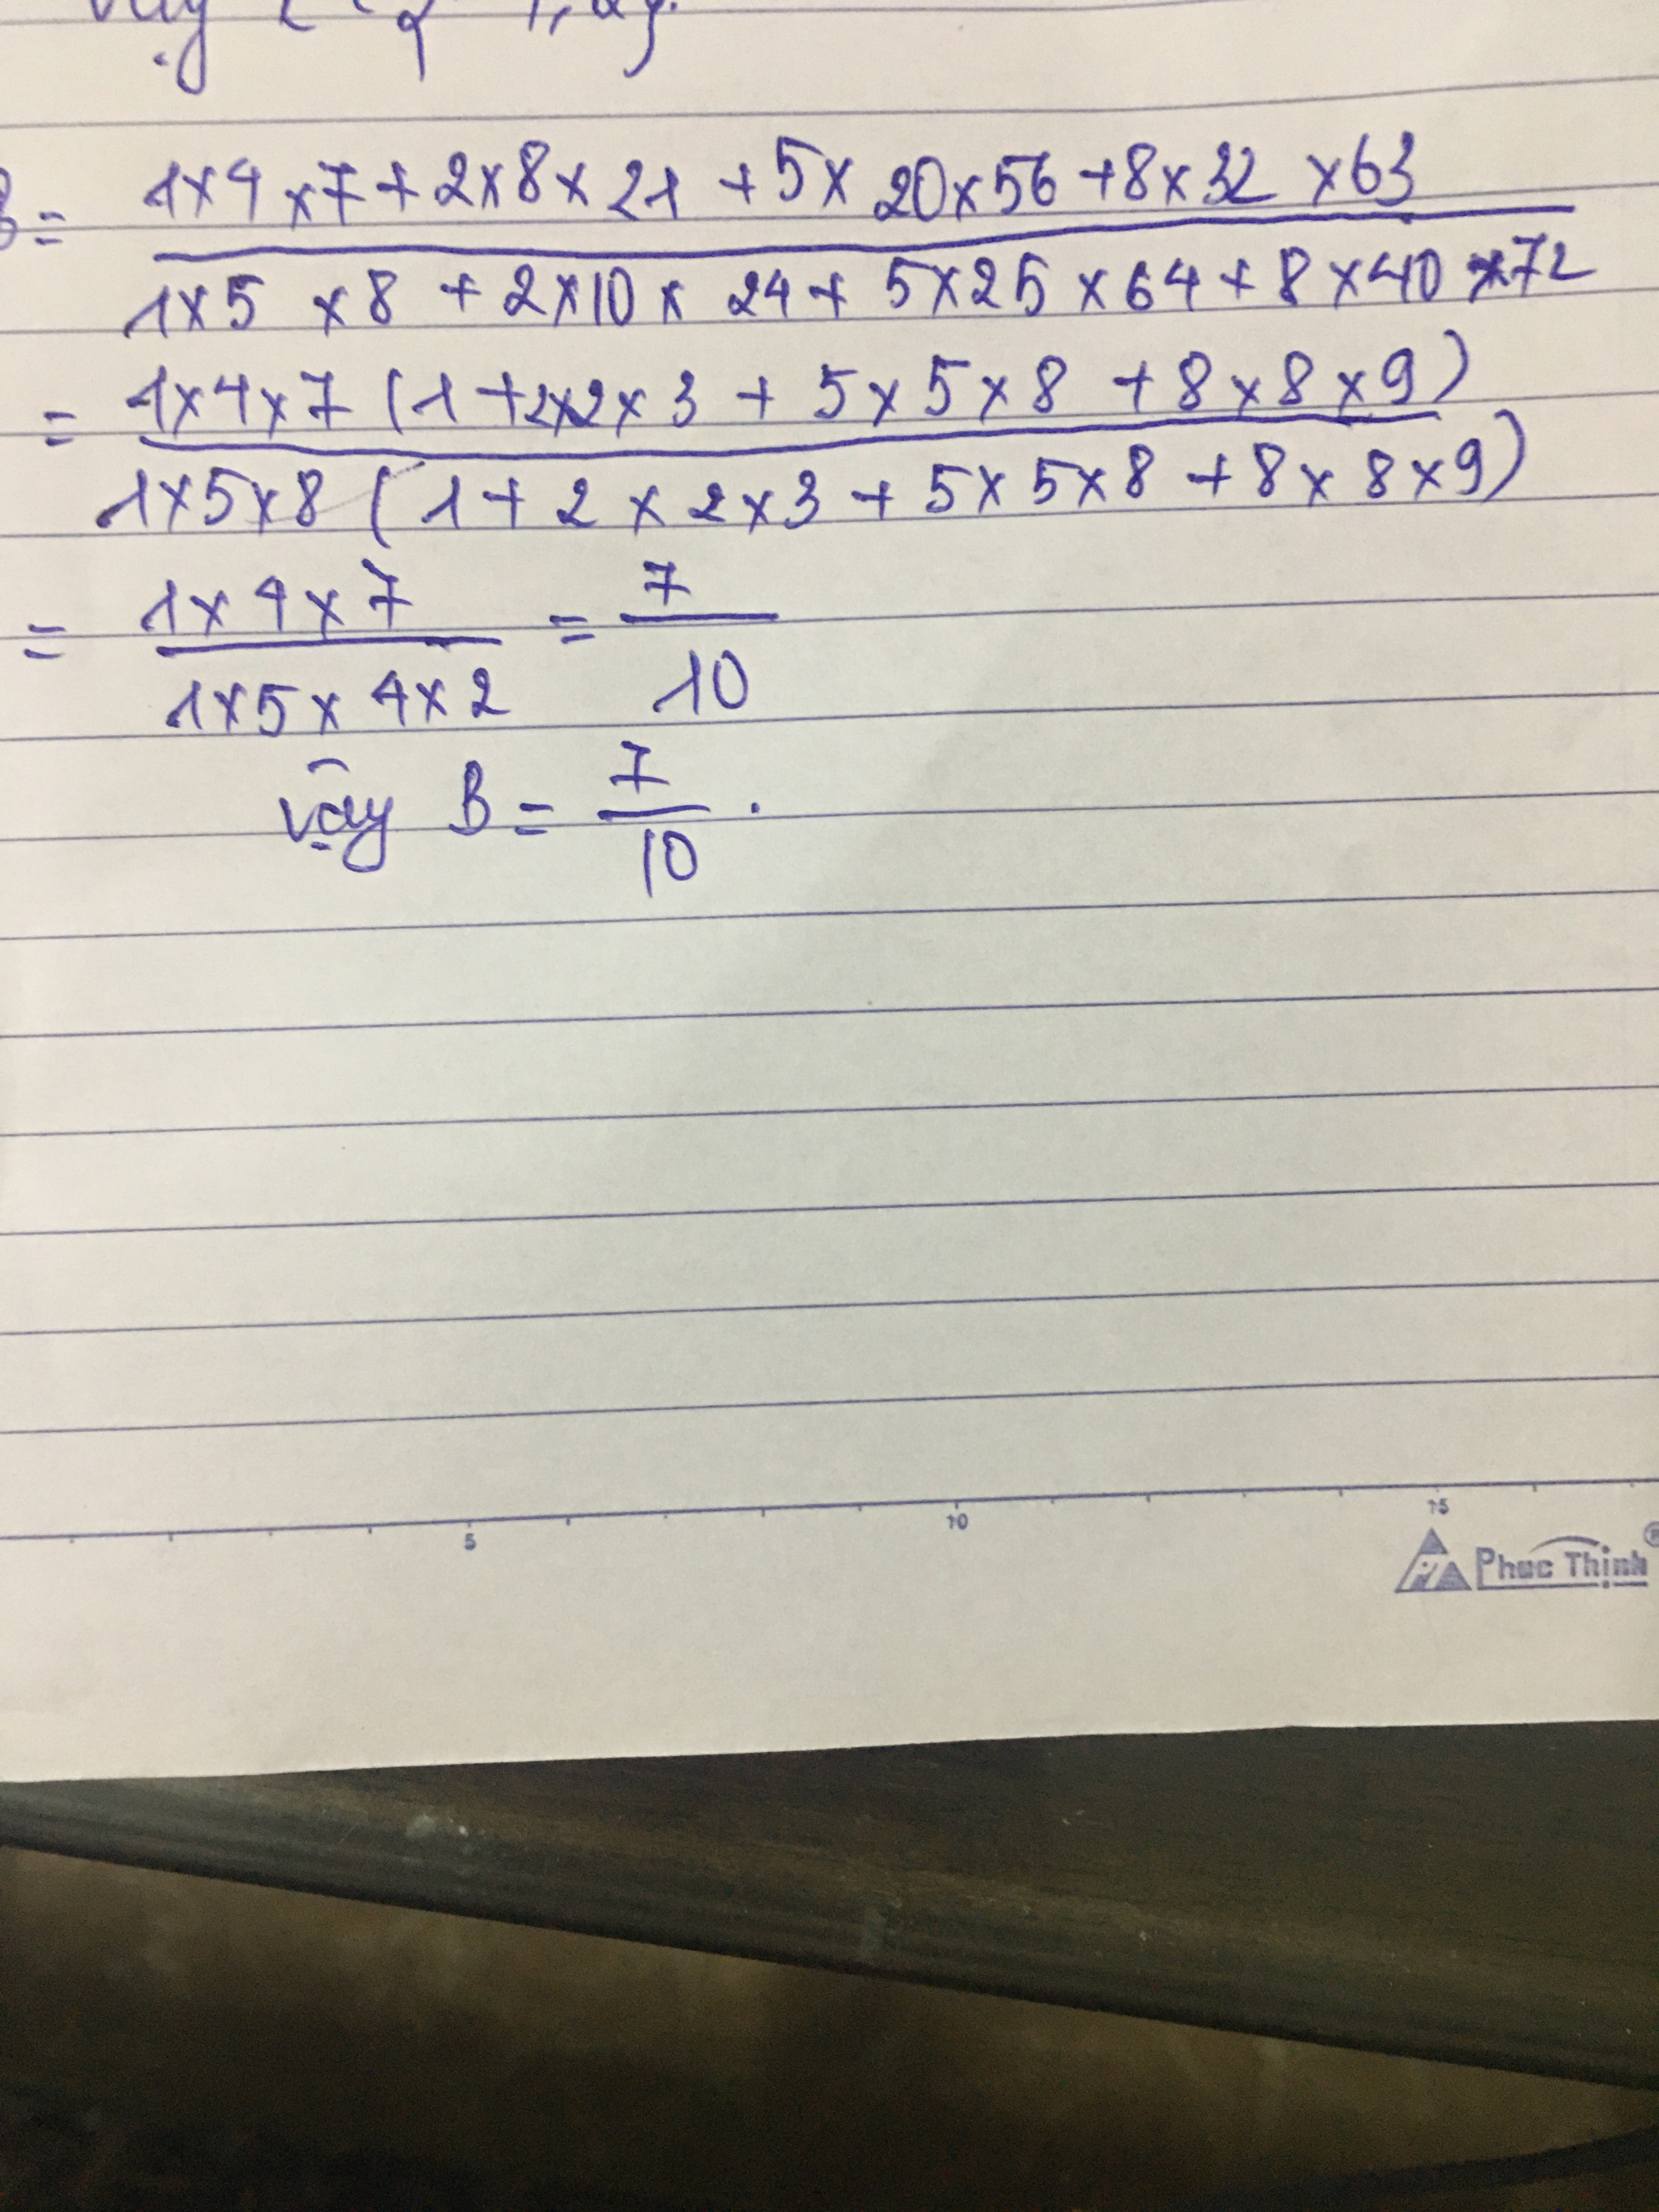 B = 1×4×7+2×8×21+5×20×56+8×32×63
1×5×8+2×10×24+5×25×64+8×40×72
= 1×4×7(1+2×2×3+5×5×8+8×8×9)
1×5×8(1+2×2×3+5×5×8+8×8×9)
= 1×4×7 = 7
1×5×4×2 10
vậy B = 7
10 .
5 10 15
Phuc Thịnh ®